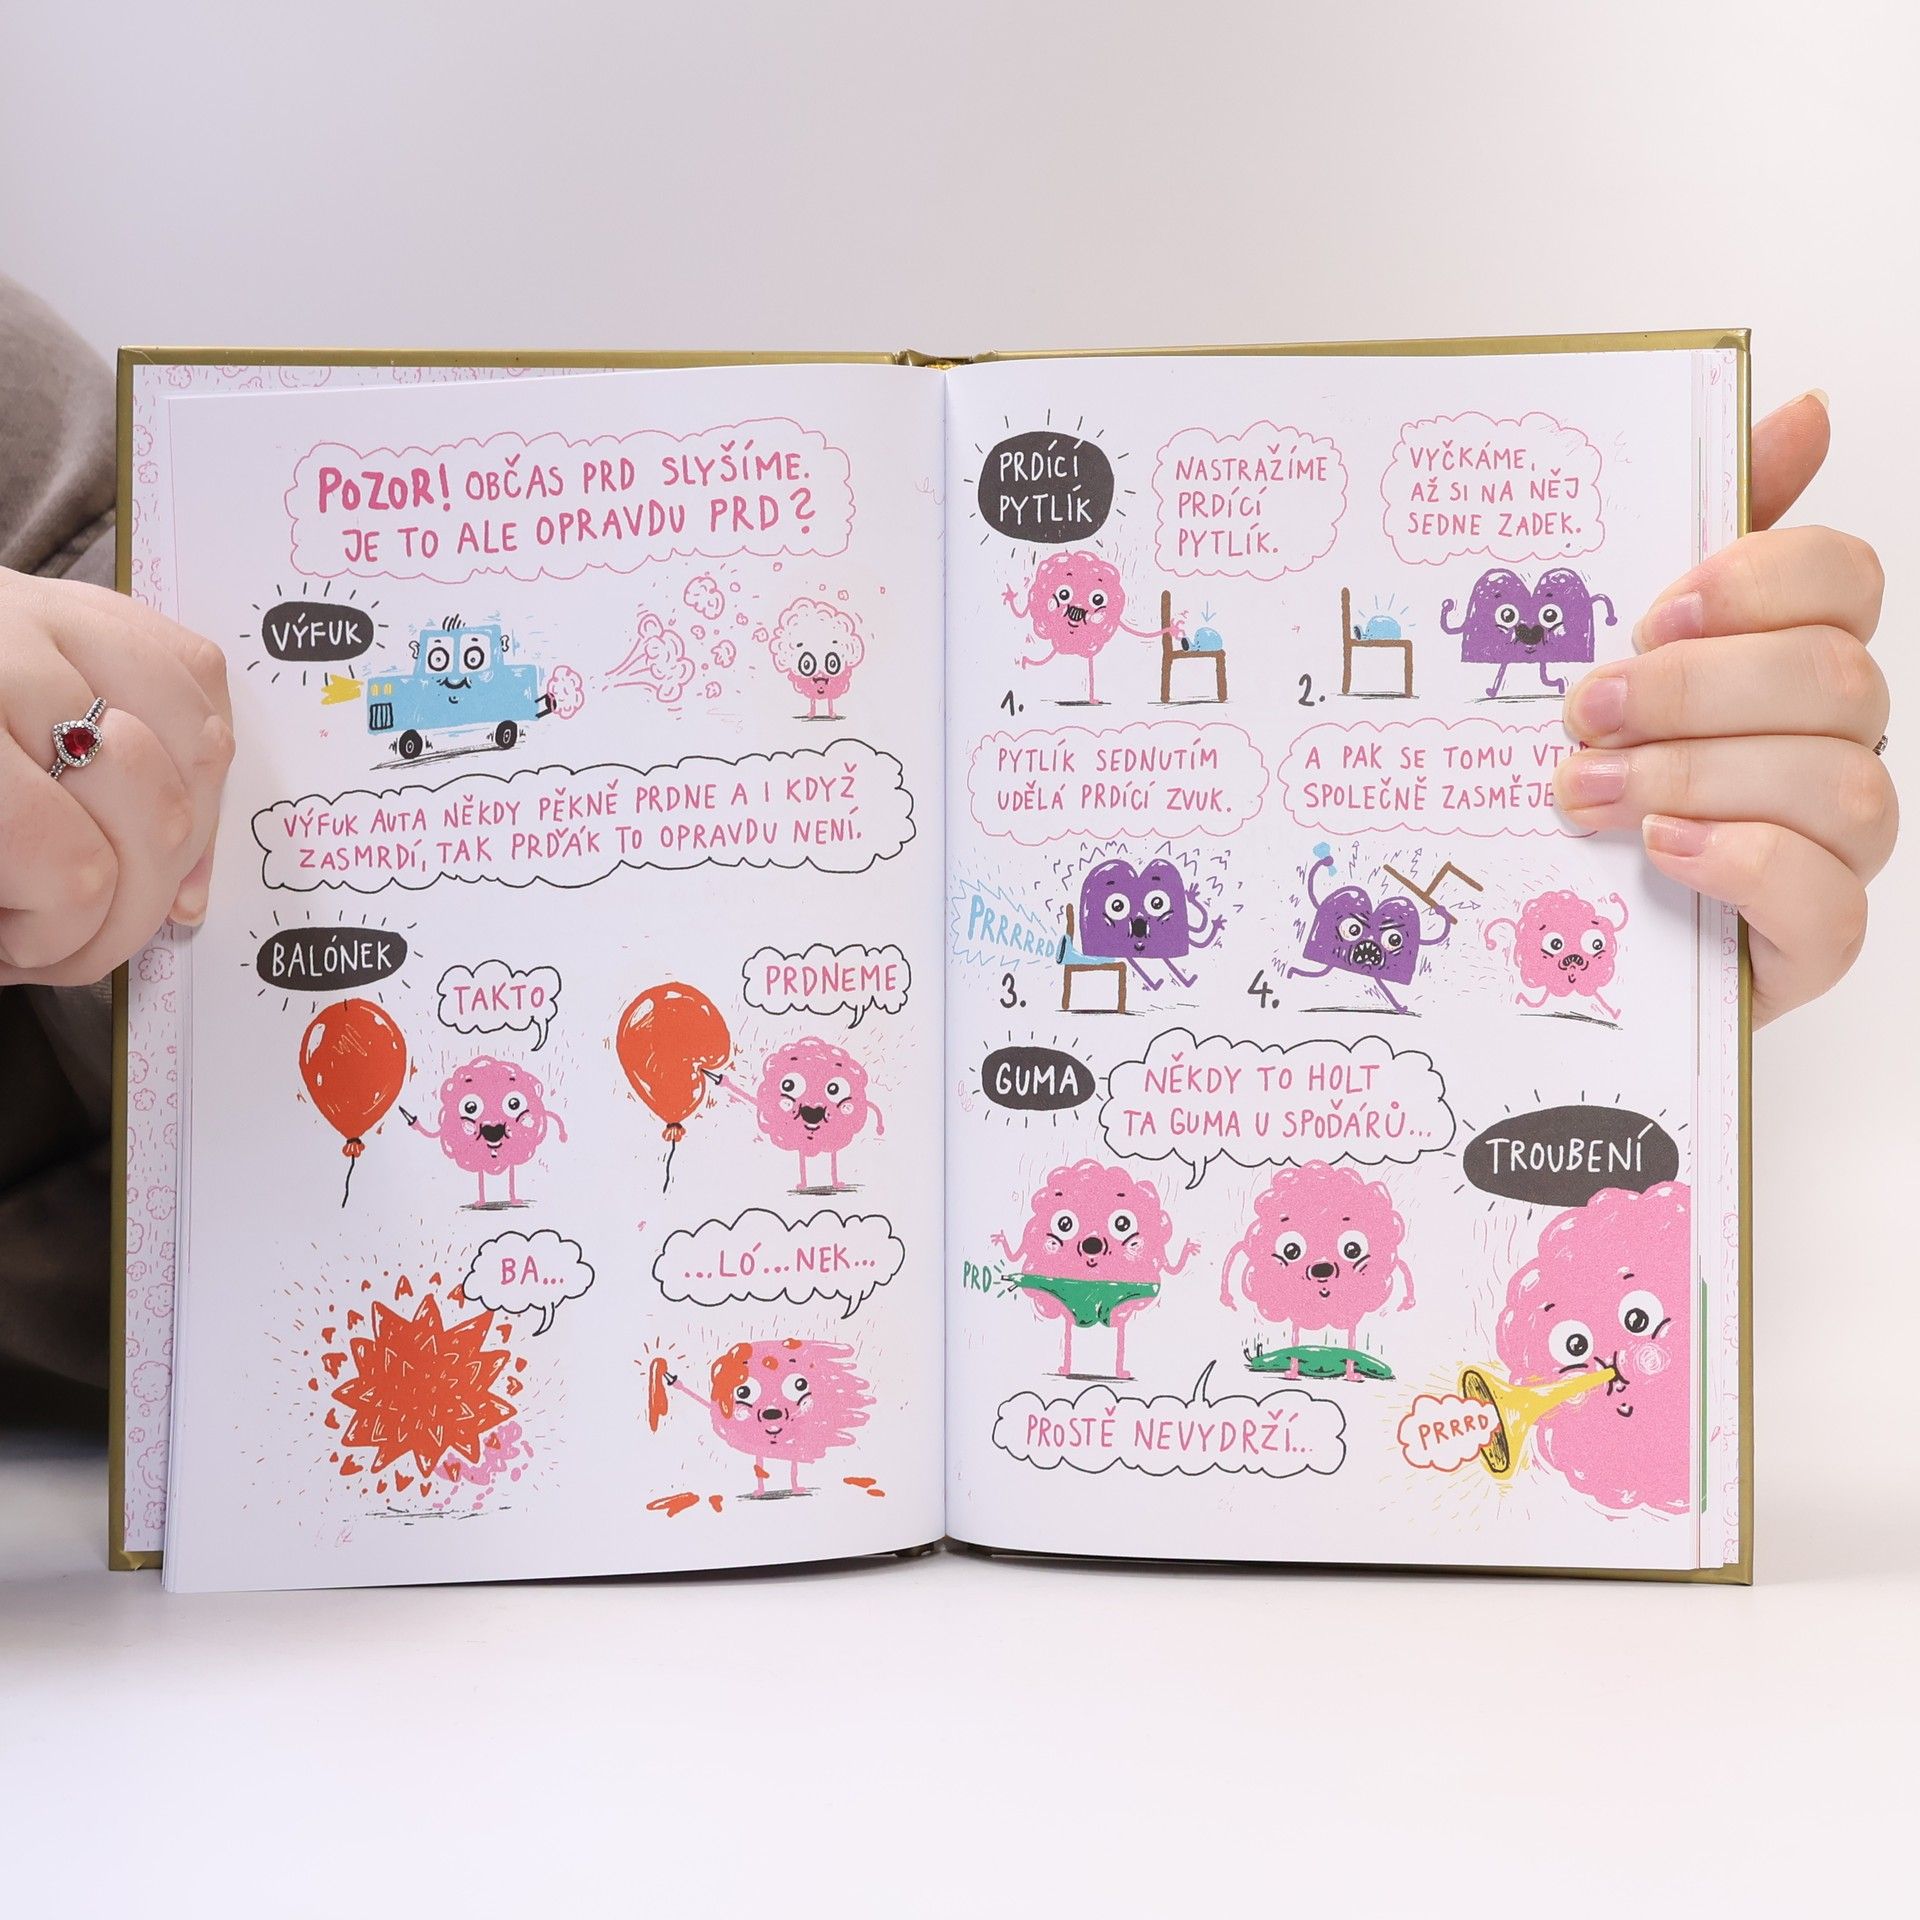 POZOR! OBČAS PRD SLYŠÍME.
JE TO ALE OPRAVDU PRD?
VÝFUK
VÝFUK AUTA NĚKDY PĚKNĚ PRDNE A I KDYŽ
ZASMRDÍ, TAK PRĎÁK TO OPRAVDU NENÍ.
BALÓNEK
TAKTO
PRDNEME
BA...
...LÓ...NEK...
PRDÍCÍ
PYTLÍK
NASTRAŽÍME
PRDÍCÍ
PYTLÍK.
VYČKÁME,
AŽ SI NA NĚJ
SEDNE ZADEK.
1.
2.
PYTLÍK SEDNUTÍM
UDĚLÁ PRDÍCÍ ZVUK.
A PAK SE TOMU
SPOLEČNĚ
PRRRRRD
3.
4.
GUMA
NĚKDY TO HOLT
TA GUMA U SPOĎÁRŮ...
PRD
PROSTĚ NEVYDRŽÍ...
TROUBENÍ
PRRRD